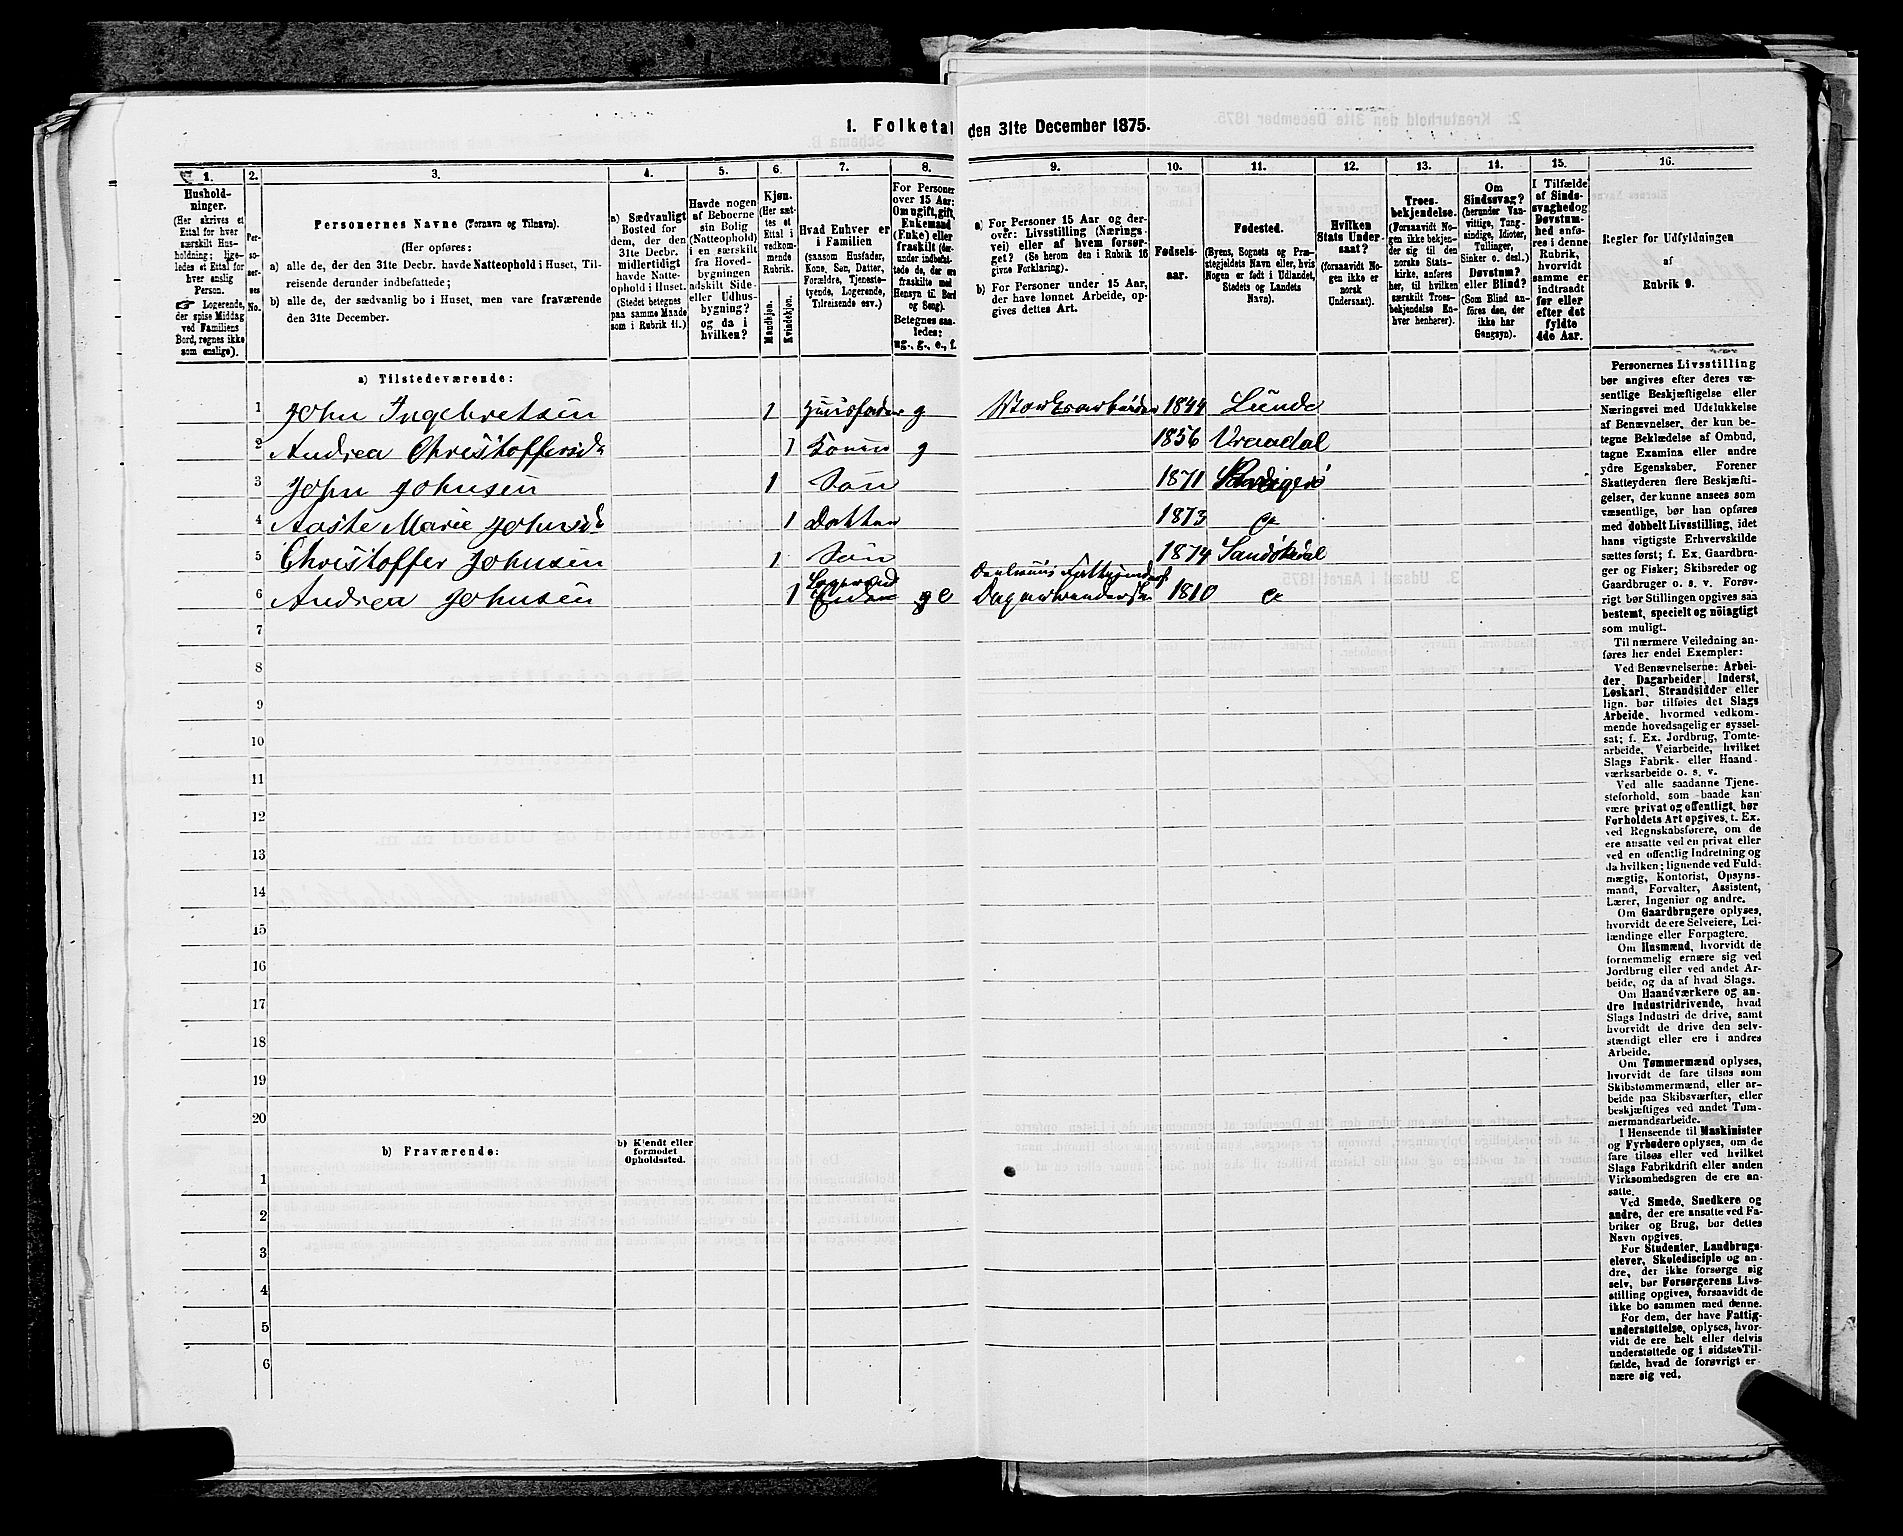 1. Folketal den 31te December 1875.
1. 2. 3. 4. 5. 6. 7. 8. 9. 10. 11. 12. 13. 14. 15. 16.
Hushold-
ninger.
(Her skrives et
Ettal for hver
særskilt Hus-
holdning; lige-
ledes et Ettal for
hver enslig
Person.
☞ Logerende,
der spise Middag
ved Familiens
Bord, regnes ikke
som enslige).
Per-
so-
ner-
nes
No.
Personernes Navne (Fornavn og Tilnavn).
(Her opføres:
a) alle de, der den 31te Decbr. havde Natteophold i Huset, Til-
reisende derunder indbefattede;
b) alle de, der sædvanlig bo i Huset, men vare fraværende
den 31te December.
a) Sædvanligt
Bosted for
dem, der den
31te Decbr.
midlertidigt
havde Natte-
ophold i Huset.
(Stedet betegnes
paa samme Maade
som i Rubrik 11.)
Havde nogen
af Beboerne
sin Bolig
(Natteophold)
i en særskilt
fra Hoved-
bygningen
adskilt Side-
eller Udhus-
bygning?
og da i
hvilken?
Kjøn.
(Her sæt-
tes et
Ettal i
vedkom-
mende
Rubrik.
Mandkjøn.
Kvindekjøn.
Hvad Enhver er
i Familien
(saasom Husfader,
Kone, Søn, Datter,
Forældre, Tjeneste-
tyende, Logerende,
Tilreisende osv.)
For Personer
over 15 Aar:
Om ugift, gift,
Enkemand
(Enke) eller
fraskilt (der-
under indbefat-
tede de, der ere
fraskilte med
Hensyn til Bord
og Seng).
Betegnes saa-
ledes:
ug., g., e., f.
a) For Personer 15 Aar og der-
over: Livsstilling (Nærings-
vei) eller af hvem forsør-
get? (Se herom den i Rubrik 16
givne Forklaring).
b) For Personer under 15 Aar,
der have lønnet Arbeide, op-
gives dettes Art.
Fødsels-
aar.
Fødested.
(Byens, Sognets og Præ-
stegjeldets Navn eller, hvis
Nogen er født i Udlandet,
Stedets og Landets
Navn).
Hvilken
Stats Under-
saat?
(forsaavidt No-
gen ikke er
norsk
Undersaat).
Troes-
bekjendelse.
(Forsaavidt No-
gen ikke bekjen-
der sig til den
norske Stats-
kirke, anføres
her, til hvilken
særskilt Troes-
bekjendelse En-
hver henhører).
Om
Sindssvag?
(herunder Van-
vittige, Tung-
sindige, Idioter,
Tullinger,
Sinker o. desl.)
Døvstum?
eller Blind?
(Som Blind an-
føres den, der
ikke har
Gangsyn).
I Tilfælde
af Sinds-
svaghed og
Døvstum-
hed anfø-
res i denne
Rubrik,
hvorvidt
samme er
indtraadt
før eller
efter det
fyldte
4de Aar.
Regler for Udfyldningen
af
Rubrik 9.
a) Tilstedeværende:
1 John Ingebretsen 1 Husfader g 1844 Lunde
2 Andrea Christoffersd. 1 Konen g 1856 Vraadal
3 John Johnsen 1 Søn 1871
4 Aaste Marie Johnsd. 1 Datter 1873
5 Christoffer Johnsen 1 Søn 1874 Sandøkedal
6 Andrea Johnsen 1 e 1810
7
8
9
10
11
12
13
14
15
16
17
18
19
20
b) Fraværende:
b) Kjendt eller
formodet
Opholdssted.
1
2
3
4
5
6
Personernes Livsstilling
bør angives efter deres væ-
sentlige Beskjæftigelse eller
Næringsvei med Udelukkelse
af Benævnelser, der kun be-
tegne Beklædelse af Ombud,
tagne Examina eller andre
ydre Egenskaber. Forener
Skatteyderen flere Beskjæfti-
gelser, der kunne ansees som
væsentlige, bør han opføres
med dobbelt Livsstilling, idet
hans vigtigste Erhvervskilde
sættes først; f. Ex. Gaardbru-
ger og Fisker; Skibsreder og
Gaardbruger o. s. v. Forøv-
rigt bør Stillingen opgives saa
bestemt, specielt og nøiagtigt
som muligt.
Til nærmere Veiledning an-
føres her endel Exempler:
Ved Benævnelserne: Arbei-
der, Dagarbeider, Inderst,
Løskarl, Strandsidder eller
lign. bør tilføies det Slags
Arbeide, hvormed vedkom-
mende hovedsagelig er syssel-
sat; f. Ex. Jordbrug, Tomte-
arbeide, Veiarbeide, hvilket
Slags Fabrik- eller Haand-
værksarbeide o. s. v.
Ved alle saadanne Tjene-
steforhold, som baade kan
være privat og offentligt, bør
Forholdets Art opgives, t. Ex.
ved Regnskabsførere, om de
ere ansatte ved en privat eller
ved en offentlig Indretning og
da hvilken; lignende ved Fuld-
mægtig, Kontorist, Opsyns-
mand, Forvalter, Assistent,
Lærer, Ingeniør og andre.
Om Gaardbrugere oplyses,
hvorvidt de ere Selveiere, Lei-
lændinge eller Forpagtere.
Om Husmænd, hvorvidt de
fornemmelig ernære sig ved
Jordbrug eller ved andet Ar-
beide, og da af hvad Slags.
Om Haandværkere og an-
dre Industridrivende, hvad
Slags Industri de drive, samt
hvorvidt de drive den selv-
stændigt eller ere i andres
Arbeide.
Om Tømmermænd oplyses,
hvorvidt de fare tilsøs som
Skibstømmermænd, eller ar-
beide paa Skibsværfter, eller
beskjæftiges ved andet Tøm-
mermandsarbeide.
I Henseende til Maskinister
og Fyrbødere oplyses, om de
fare tilsøs eller ved hvilket
Slags Fabrikdrift eller anden
Virksomhedsgren de ere an-
satte.
Ved Smede, Snedkere og
andre, der ere ansatte ved Fa-
briker og Brug, bør dettes
Navn opgives.
For Studenter, Landbrugs-
elever, Skoledisciple og an-
dre, der ikke forsørge sig
selv, bør Forsørgerens Livs-
stilling opgives, forsaavidt de
ikke bo sammen med denne.
For dem, der have Fattig-
understøttelse, oplyses, hvor-
vidt de ere helt eller delvis
understøttede og i sidste Til-
fælde, hvad de forøvrigt er-
nære sig ved.